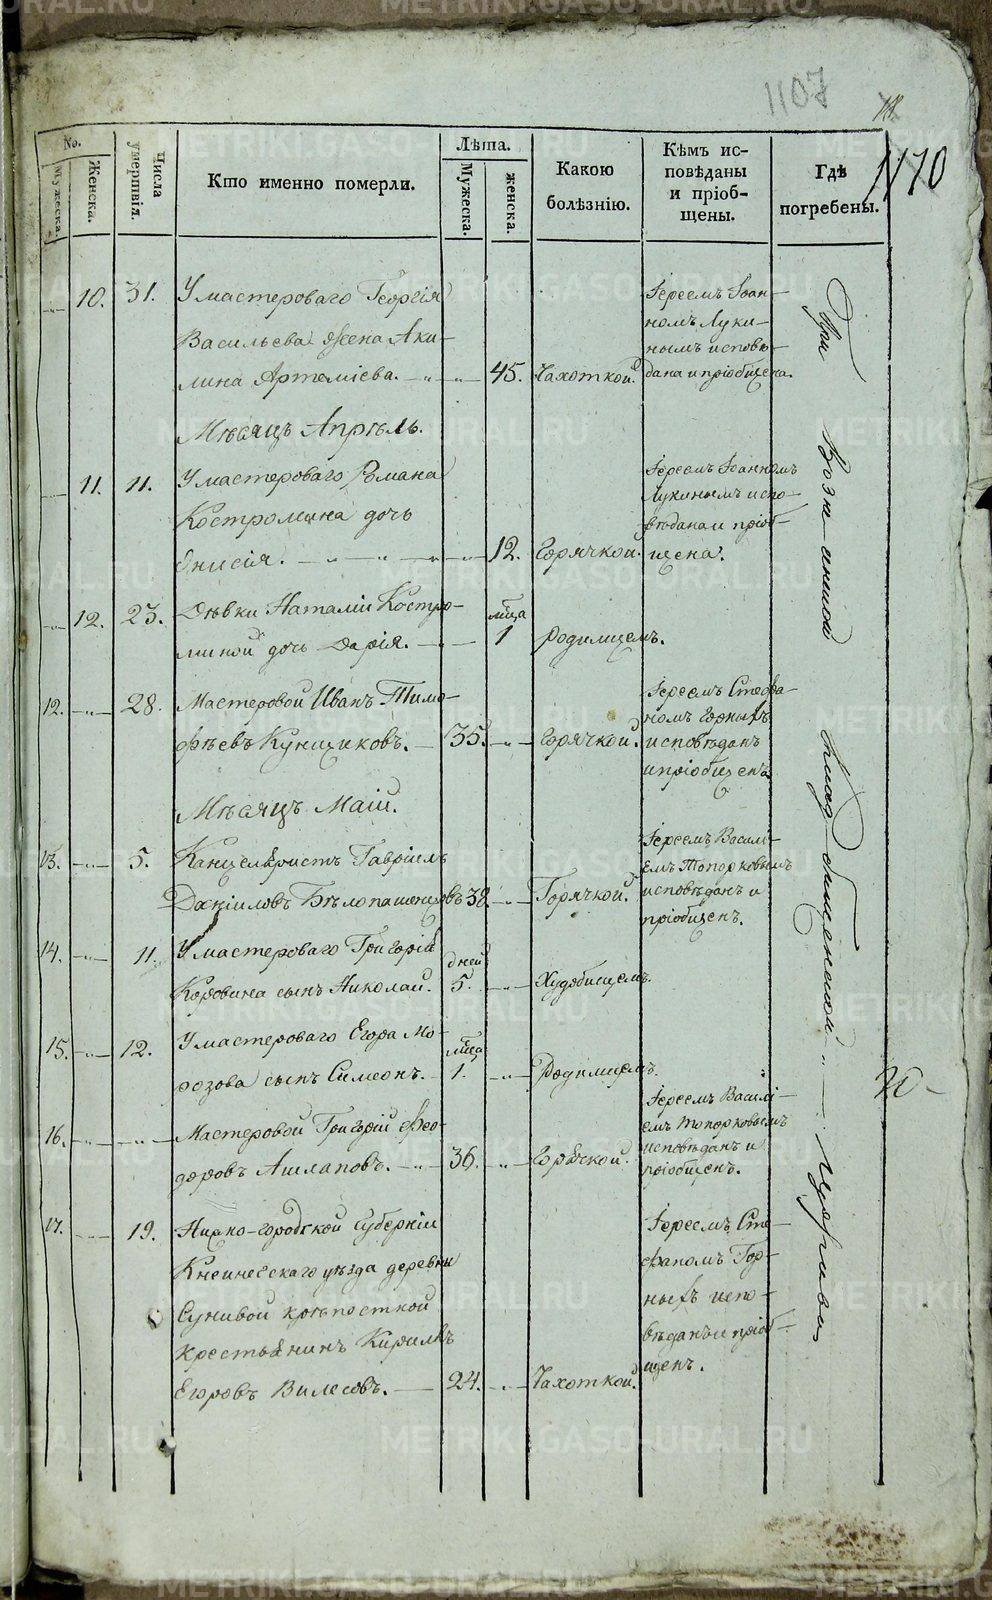 1107
1170
No.
Мужеска.
Женска.
Числа умертвія.
Кто именно померли.
Лѣта.
Мужеска.
женска.
Какою болѣзнію.
Кѣмъ ис-
повѣданы
и пріоб-
щены.
Гдѣ
погребены.
10. 31. У мастероваго Георгія
Васильева жена Аки-
лина Артеміева. 45. Чахоткой.
Іереемъ Іоан-
номъ Луки-
нымъ исповѣ-
дана и пріобщена.
Мѣсяцъ Апрѣль.
11. 11. У мастероваго Романа
Костромина дочь
Енисія. 12. Горячкой.
Іереемъ Іоанномъ
Лукинымъ испо-
вѣдана и пріоб-
щена.
12. 23. Дѣвки Наталіи Костро-
миной дочь Дарія. мѣца 1 Родимцемъ.
12. 28. Мастеровой Иванъ Тимо-
фѣевъ Кунщиковъ. 35. Горячкой.
Іереемъ Стефа-
номъ Горныхъ
исповѣданъ
и пріобщенъ
Мѣсяцъ Маій.
13. 5. Канцеляристъ Гавріилъ
Даніиловъ Бѣлопашенцовъ 38. Горячкой.
Іереемъ Василі-
емъ Топорковымъ
исповѣданъ и
пріобщенъ.
14. 11. У мастероваго Григорія
Коровина сынъ Николай. дней 5. Худобищемъ.
15. 12. У мастероваго Егора Мо-
розова сынъ Симеонъ. мѣца 1. Родимцемъ.
16. Мастеровой Григорій Фео-
доровъ Ашлаповъ. 36. Горячкой.
Іереемъ Василі-
емъ Топорковымъ
исповѣданъ и
пріобщенъ.
17. 19. Нижно-городской губерніи
Княгинескаго уѣзда деревни
Сунивой крѣпостной
крестьянинъ Кирилъ
Егоровъ Вилесовъ. 24. Чахоткой.
Іереемъ Сте-
фаномъ Гор-
ныхъ испо-
вѣданъ и пріоб-
щенъ.
При Вознесенской кладбищенской церкви
METRIKI.GASO-URAL.RU